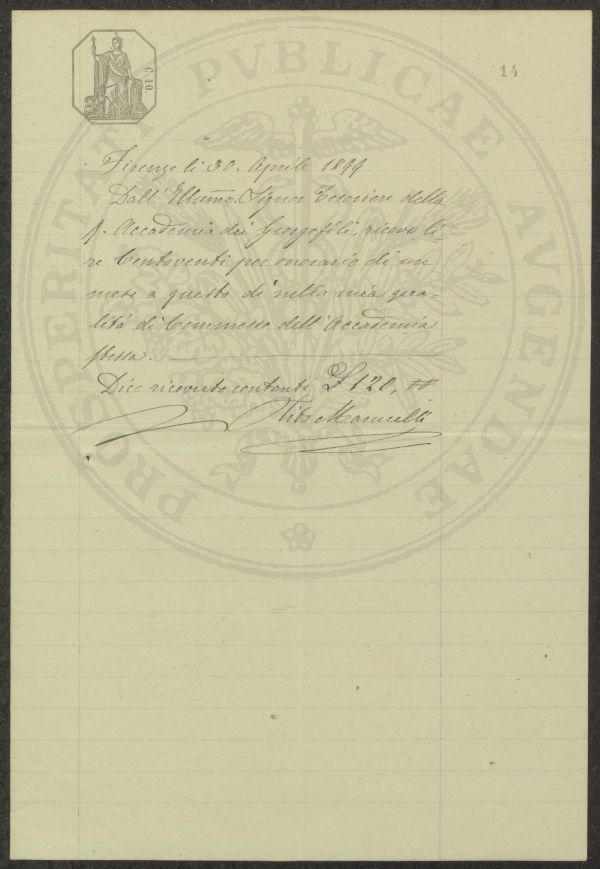 C. 40.
14
PROSPERITATI PVBLICAE AVGENDAE
Firenze li 30. Aprile 1899
Dall' Illumo. Signor Tesoriere della
R. Accademia dei Georgofili, ricevo li-
re Centoventi per onorario di un
mese a questo dì nella mia qua-
lità di Commesso dell' Accademia
stessa.
Dico ricevute contanti £ 120,
Tito Marucelli